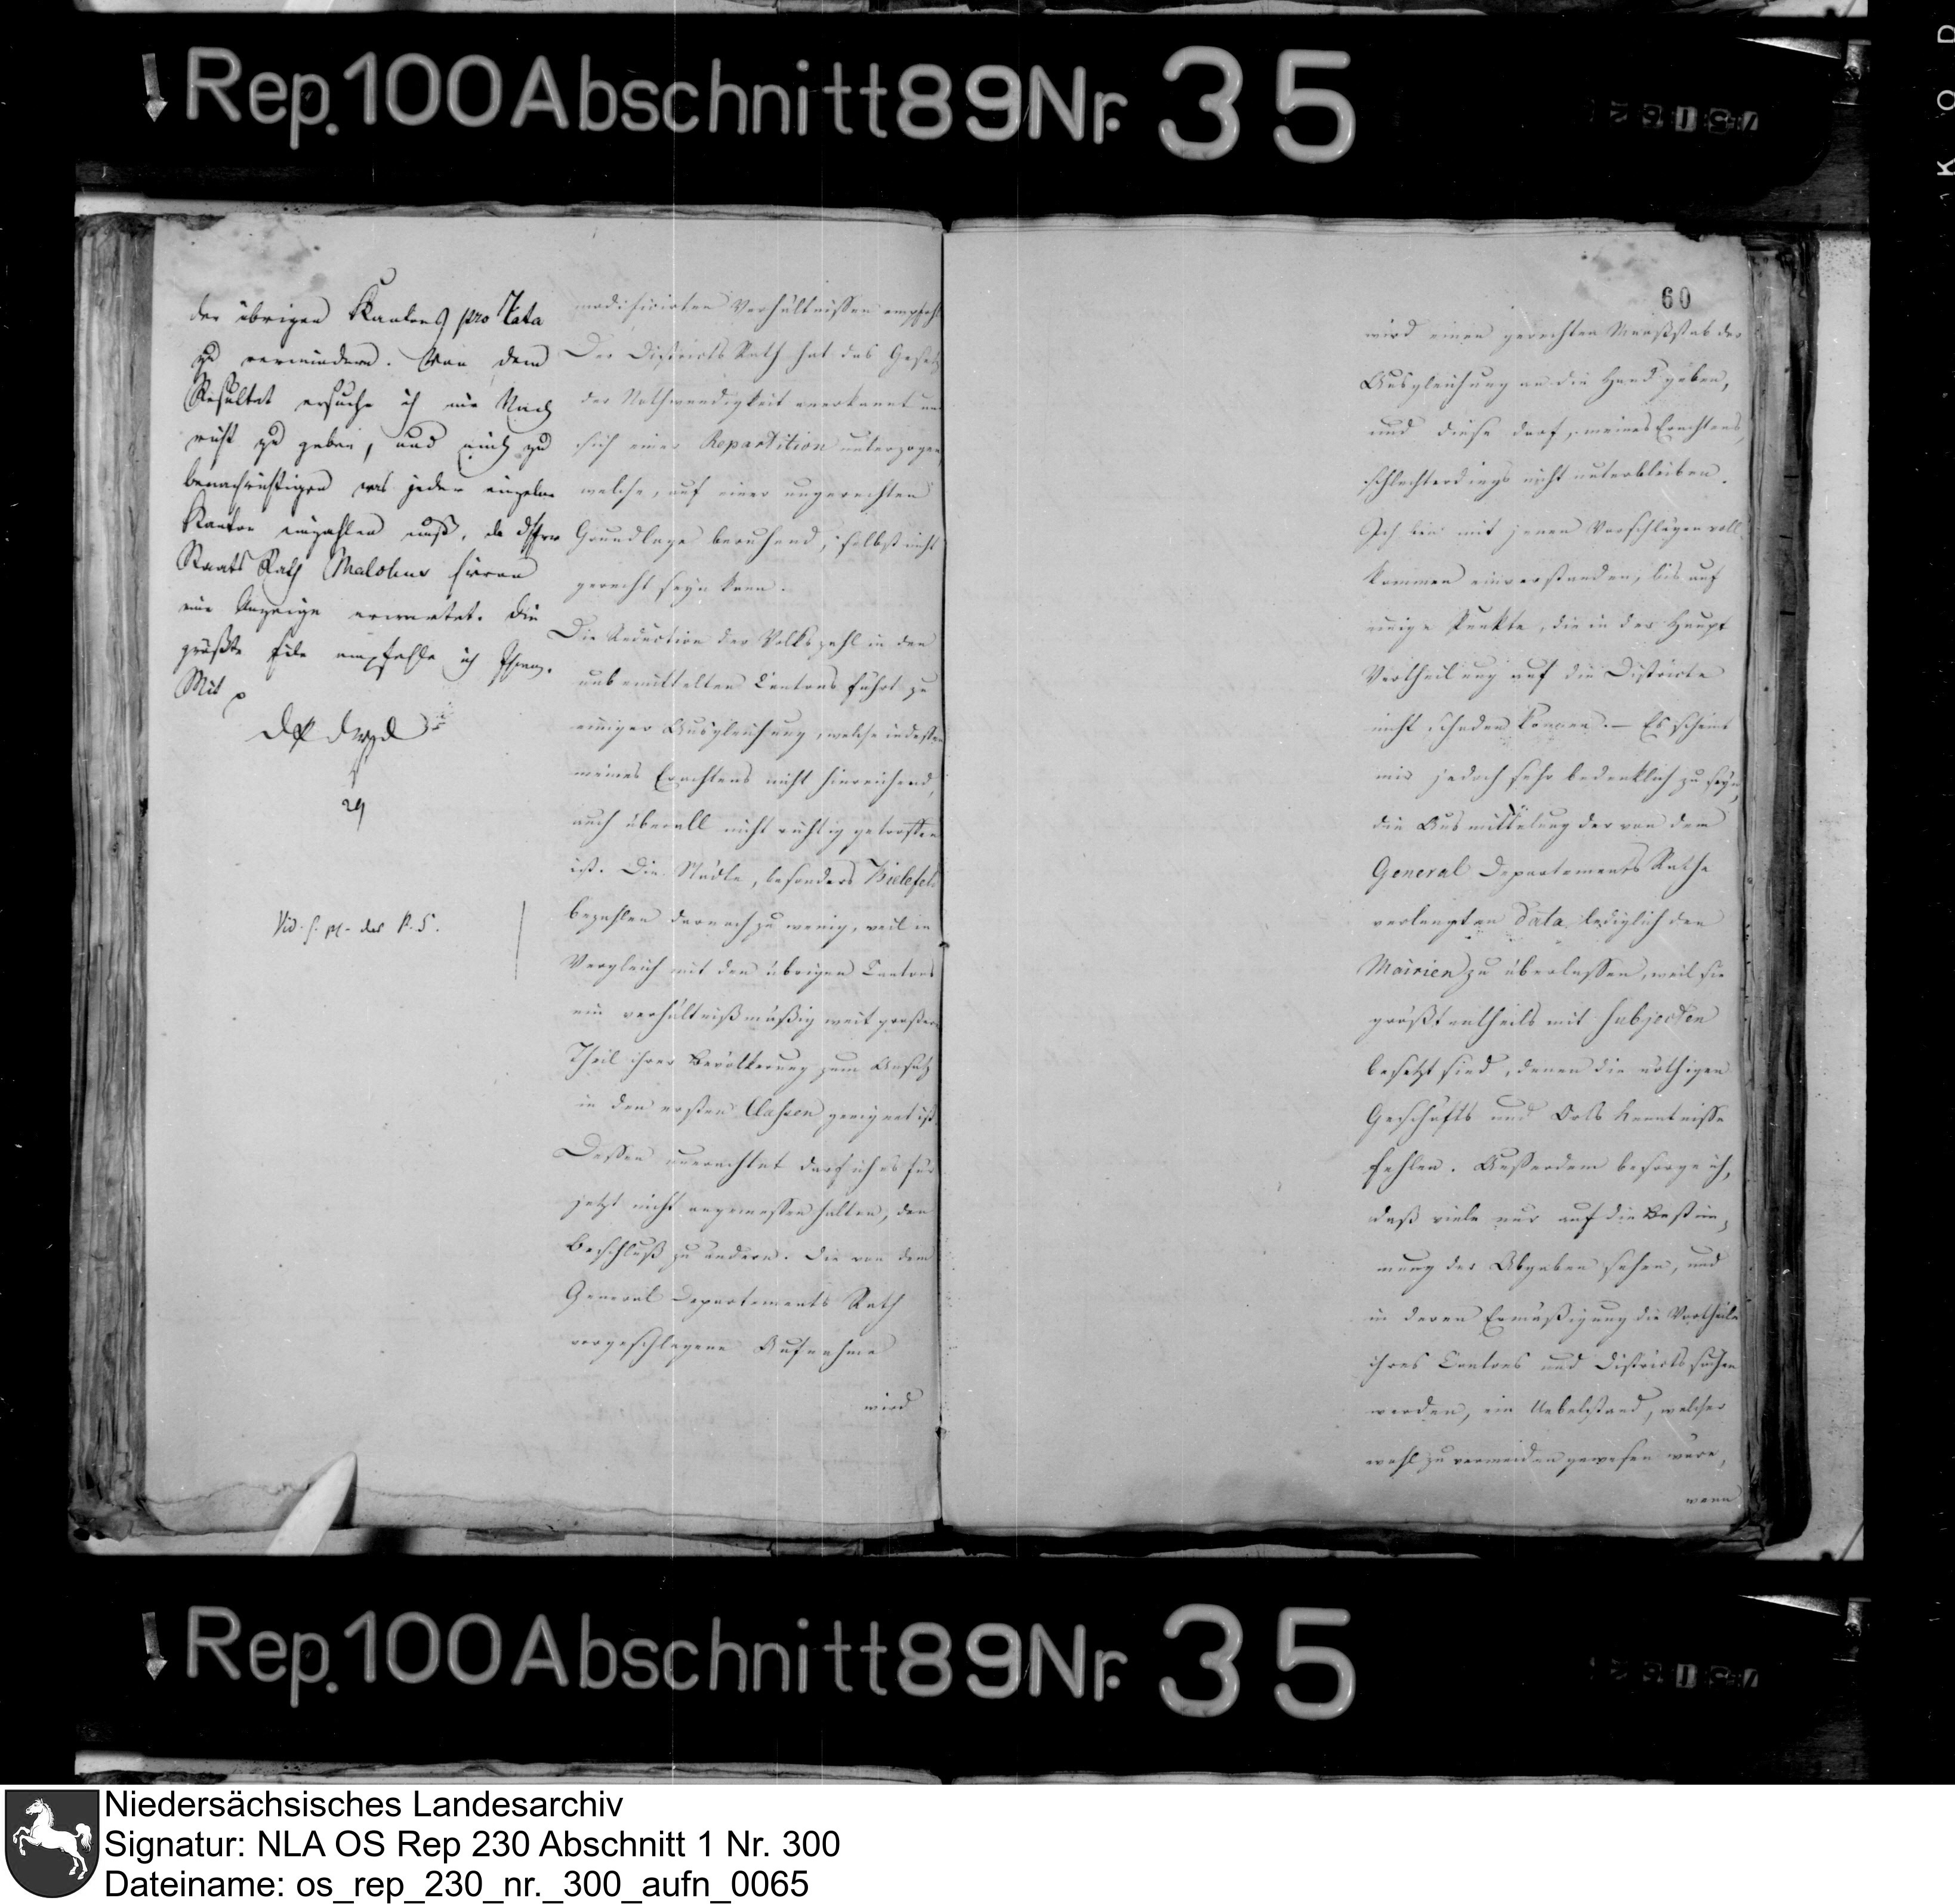 Rep. 100 Abschnitt 89 Nr. 35
der übrigen Kantons pro Rata
zu vermindern. Von dem
Resultat ersuche ich mir Nach
richt zu geben, und mich zu
benachrichtigen was jeder einzelne
Kanton einzahlen muß, da
Staats Rath Malchus hievon
eine Anzeige erwartet. Die
größte Eile empfehle ich
Mit
29
Vid. des P. S.
modificirten Verhältnissen
Der Districts Rath hat das Gesetz
der Nothwendigkeit anerkannt und
sich einer Repartition unterzogen,
welche, auf einer ungerechten
Grundlage beruhend, selbst nicht
gerecht seyn kann.
Die Reduction der Volkszahl in den
unbemittelten Cantons führt zu
einiger Ausgleichung, welche indessen
meines Erachtens nicht hinreichend,
auch überall nicht richtig getroffen
ist. Die Städte, besonders Bielefeld
bezahlen darnach zu wenig, weil in
Vergleich mit den übrigen Cantons
ein verhältnißmäßig weit großer
Theil ihrer Bevölkerung zum Ansatz
in den ersten Classen geeignet ist.
Dessen unerachtet darf ich es für
jetzt nicht angemessen halten, den
Beschluß zu ändern. Die von dem
General Departements Rath
vorgeschlagene Aufnahme
wird
60
wird einen gerechten Maaßstab der
Ausgleichung an die Hand geben,
und diese darf, meines Erachtens,
schlechterdings nicht unterbleiben.
Ich bin mit jenen Vorschlägen voll
kommen einverstanden, bis auf
einige Punkte, die in der Haupt
Vertheilung auf die Districte
nicht schaden können. – Es scheint
mir jedoch sehr bedenklich zu seyn,
die Ausmittelung der von dem
General Departements Rathe
verlangten Data lediglich den
Mairien zu überlassen, weil sie
größtentheils mit Subjecten
besetzt sind, denen die nöthigen
Geschäfts und Orts Kenntnisse
fehlen. Außerdem besorge ich,
daß viele nur auf die Bestim,
mung der Abgaben sehen, und
in deren Ermäßigung die Vortheile
ihres Cantons und Districts suchen
werden, ein Uebelstand, welcher
wohl zu vermeiden gewesen wäre,
wenn
Rep. 100 Abschnitt 89 Nr. 35
Niedersächsisches Landesarchiv
Signatur: NLA OS Rep 230 Abschnitt 1 Nr. 300
Dateiname: os_rep_230_nr._300_aufn_0065